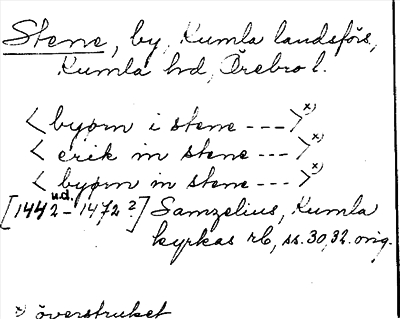 Stene, by, Kumla landsförs,
Kumla hd, Örebro l.
< byørn i stene --- > x)
< erik in stene --- > x)
< byørn in stene --- > x)
[1442 u.d. - 1472?] Samzelius, Kumla
kyrkas rb, ss. 30, 32. orig.
x) överstruket